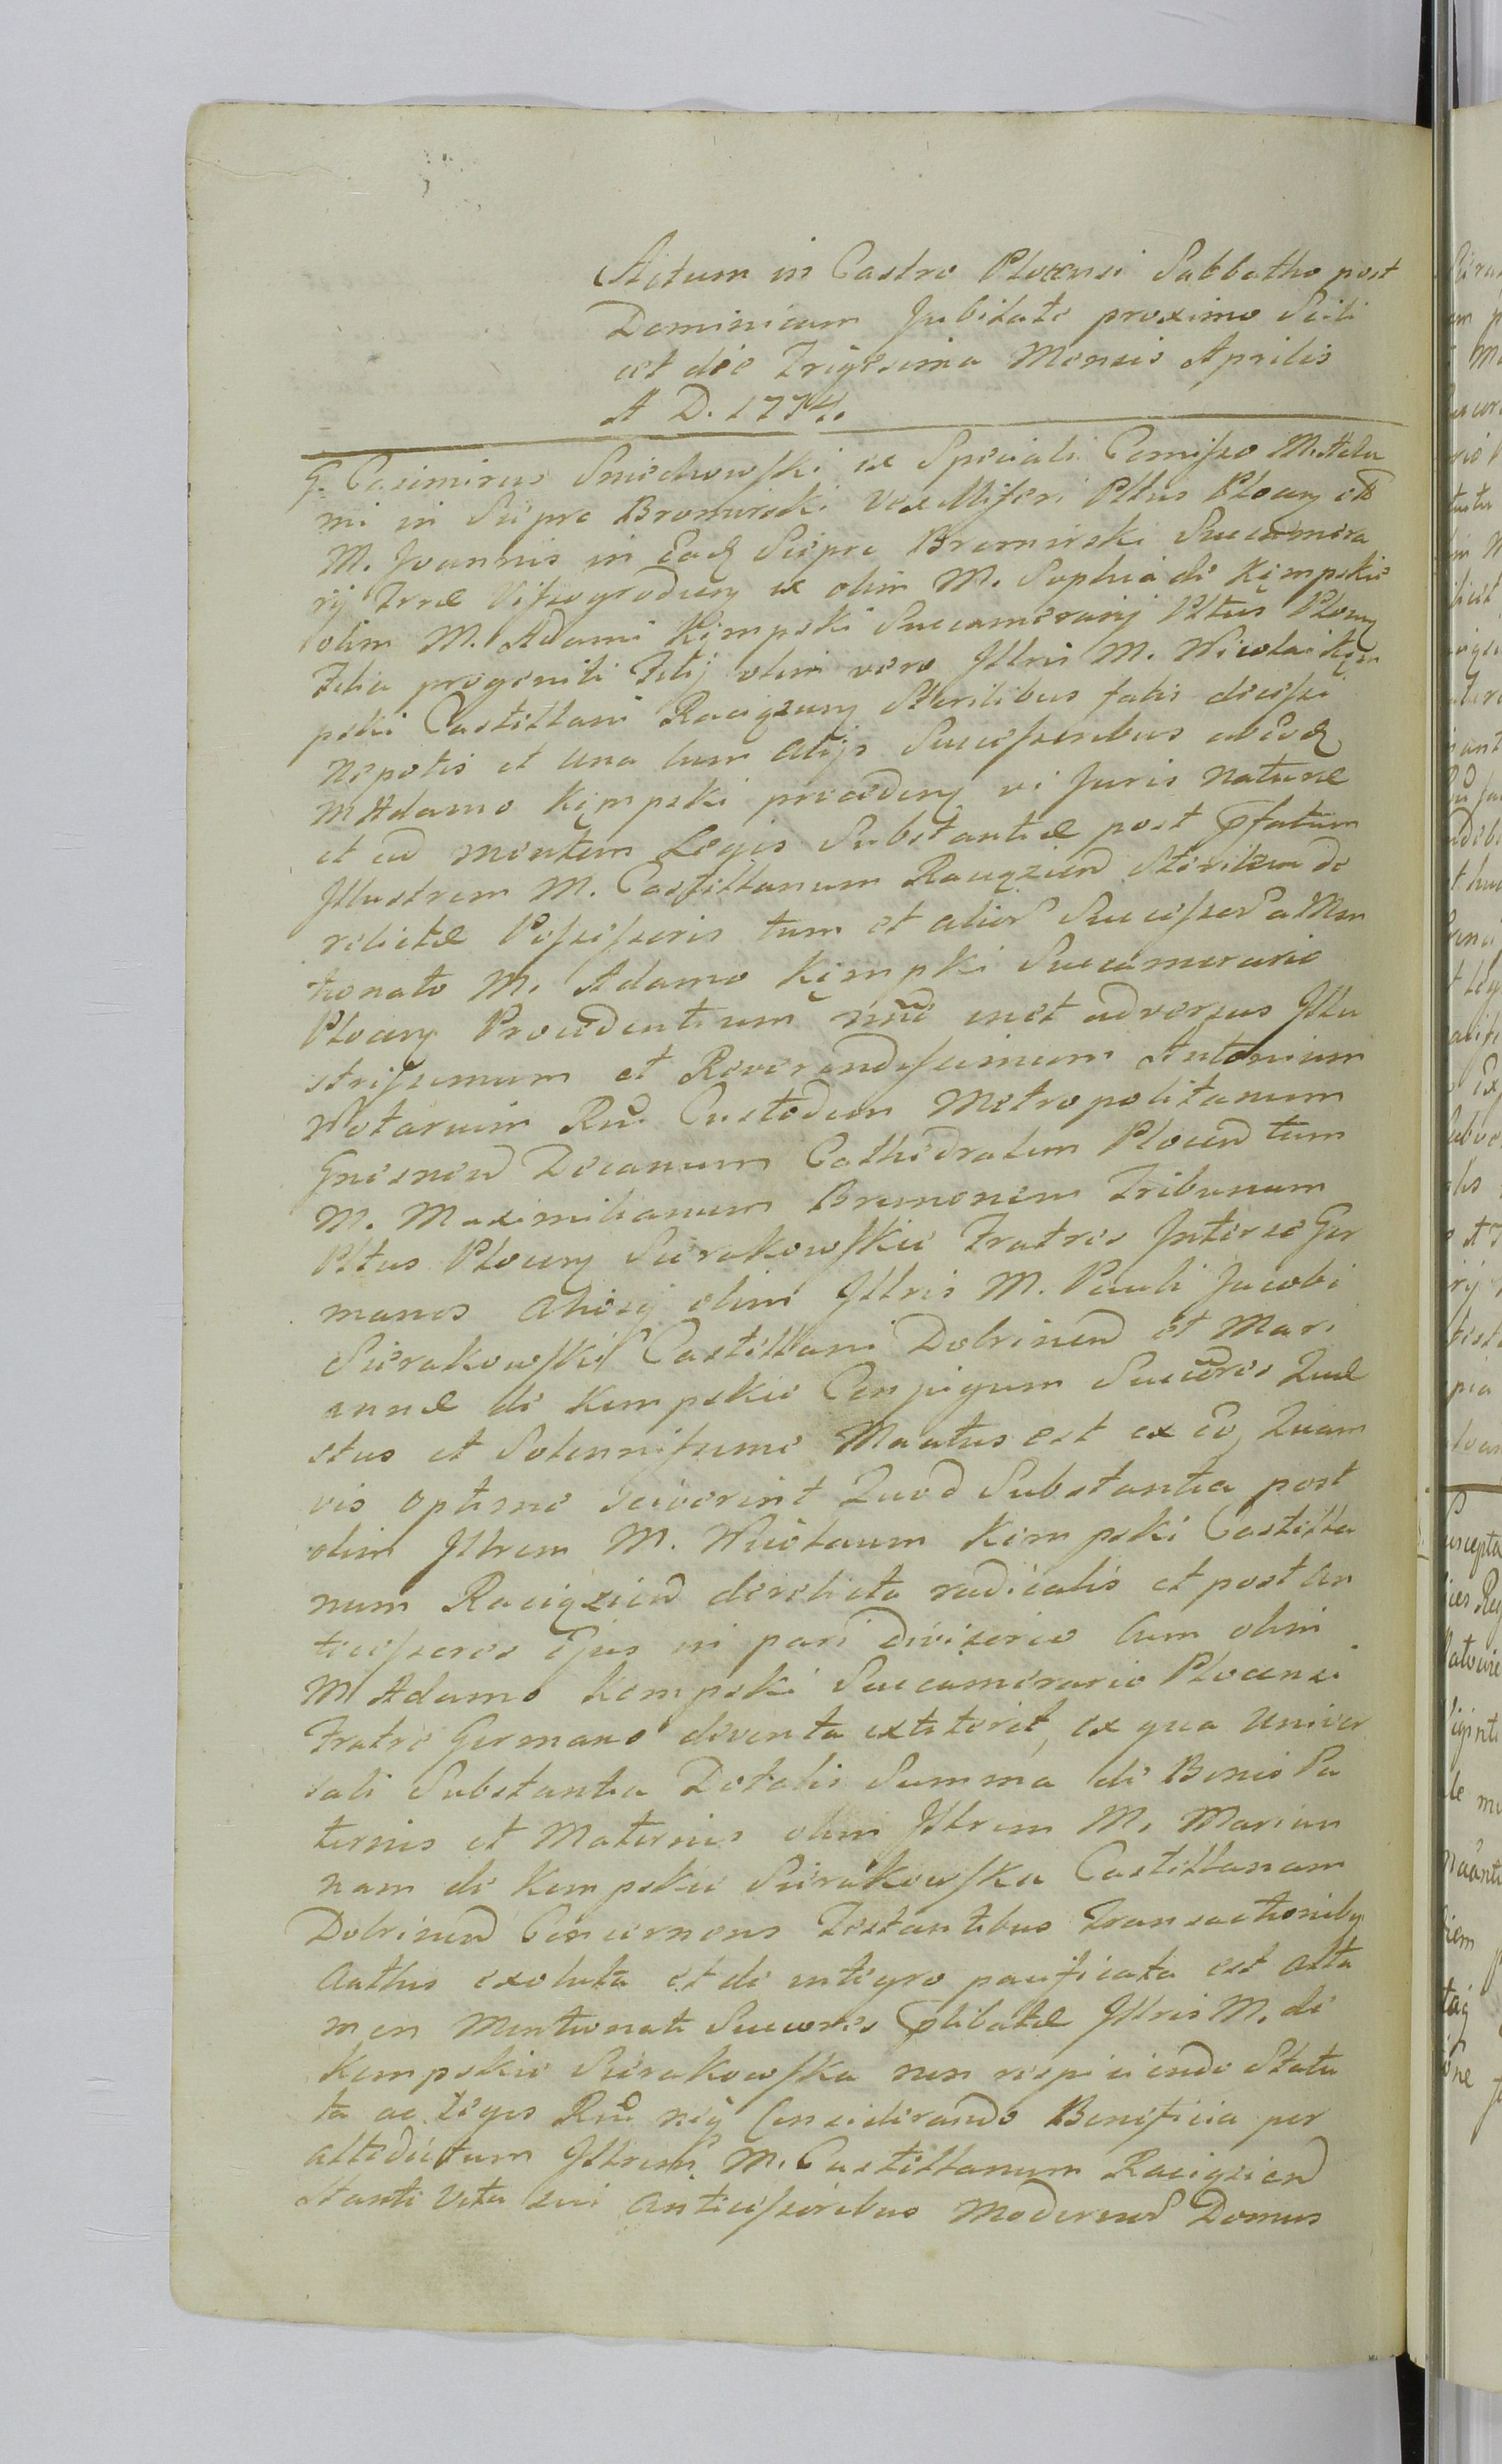 Actum in Castro Plocensi Sabbatho post
Dominicam Jubilate proximo Scili
cet die Trigesima Mensis Aprilis
A D. 1774.
G. Casimirus Sniechowski ex Speciali Comisso M. Ada
mi in Sieprc Bromirski Vexilliferi Pltus Plocen et
M. Joannis in Ead Sieprc Bromirski Succamera
rij Trræ Vissogroden ex olim M. Sophia de Kępskie
olim M. Adami Kępmpski Succamerarij Pltus Plocen
Filia progeniti Filij olim vero Illris M. Nicolai Kęm
pski Castellani Raciązen Sterilibus fatis decessi
Nepotis et una cum alijs Successoribus ab eod
M Adamo Kęmpski proceden vi Juris Naturæ
et ad mentem Legis Substantiæ post pfatum
Illustrem M. Castellanum Raciąziens Sterilem de
relictæ Possessoris tum et alior Successor a Men
tionato M. Adamo Kęmpski Succamerario
Plocen Procedentium nnē inet adversus Illu
strissimum et Reverendissimum Antonium
Notarium Rni Custodem Metropolitanum
Gnesnen Decanum Cathedralem Plocen tum
M. Maximilianum Brunonem Tribunum
Pltus Plocen Sierakowskie Fratres Inter se Ger
manos aliosq olim Illris M. Pauli Jacobi
Sierakowski Castellani Dobrinen et Mari
annæ de Kempskie Conjugum Succōres Quæ
stus et Solennissime Mnatus est ex eo, Quam
vis optime sciverint Quod Substantia post
olim Illrem M. Nicolaum Kempski Castella
num Raciązien derelicta radicalis et post An
tecessores ejus in pari divisorio Cum olim
M Adamo Kempski Succamerario Plocensi
Fratre Germano deventa extiterit, ex qua univer
sali Substantia Dotalis Summa de Bonis Pa
ternis et Maternis olim Illrem M. Marian
nam de Kempskie Sierakowska Castellanam
Dobrinen Concernens Testantibus Transactionibus
Acttus exoluta et de integro pacificata est atta
men Mentionati Succores plibatæ Illris M. de
Kempskie Sierakowska non respiciendo Statu
ta ac Leges Rni neq Considerando Beneficia per
altedictum Illrem M. Castellanum Raciązien
Stante Vita sui Antecessoribus Modernor Domus